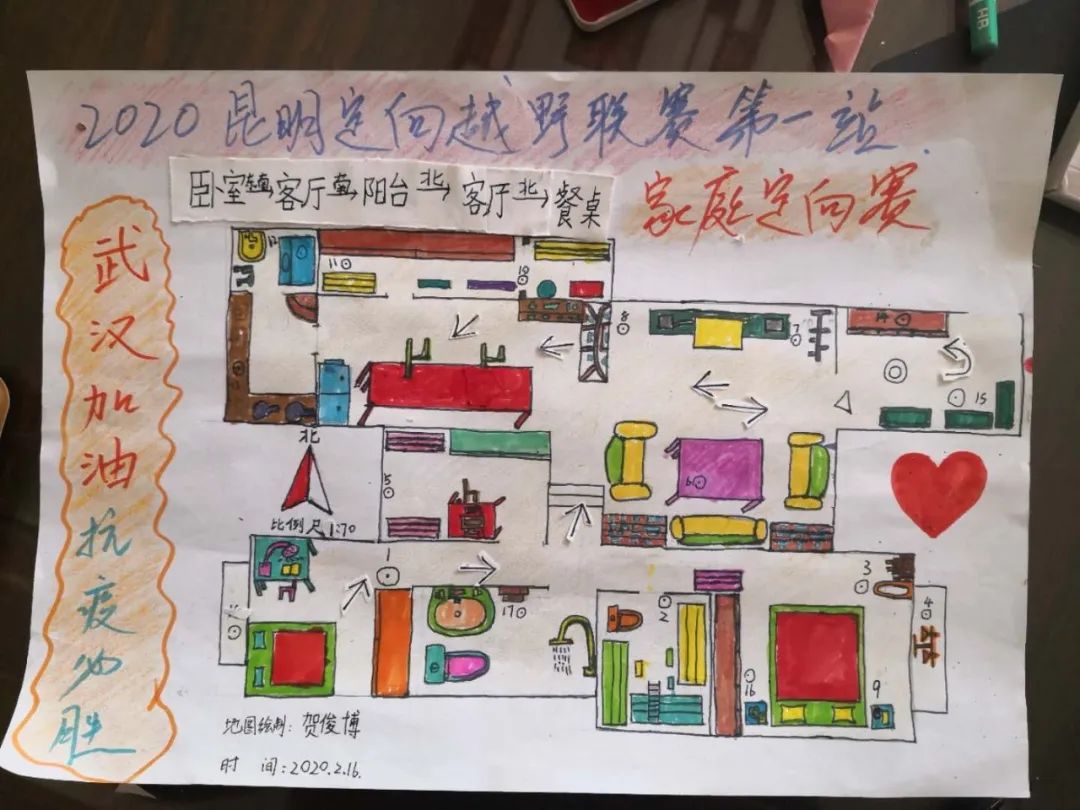 2020昆明定向越野联赛第一站.
卧室 客厅 阳台 北 客厅 北 餐桌
家庭定向赛
武汉加油抗疫必胜
12
11
10
8
7
14
15
北
5
6
比例尺 1:70
1
3
17
2
4
16
9
地图绘制: 贺俊博
时 间: 2020.2.16.
HB